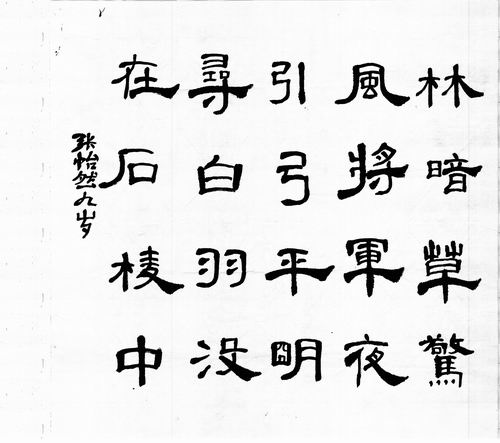 林暗草驚
風將軍夜
引弓平明
尋白羽没
在石棱中
张怡然九岁